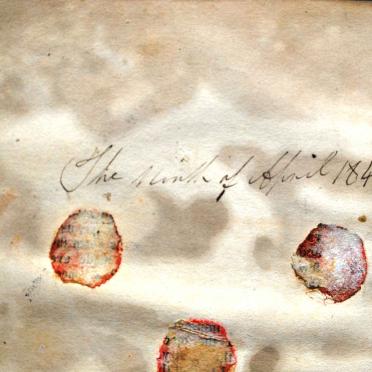 The ninth of April 184